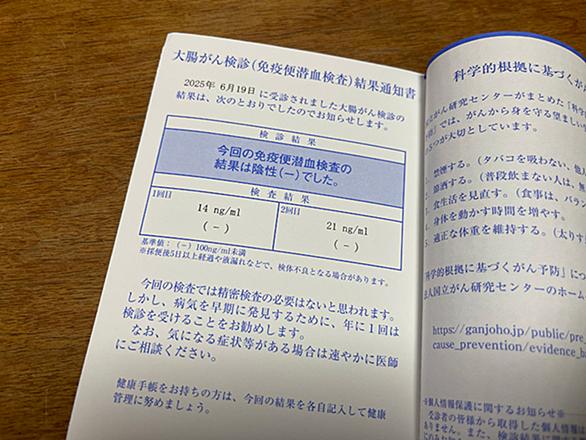 大腸がん検診(免疫便潜血検査)結果通知書
2025年 6月19日 に受診されました大腸がん検診の
結果は、次のとおりでしたのでお知らせします。
検診結果
今回の免疫便潜血検査の
結果は陰性(-)でした。
検査結果
1回目
14 ng/ml
(-)
2回目
21 ng/ml
(-)
基準値:(-)100ng/ml未満
※採便後5日以上経過や液漏れなどで、検体不良となる場合があります。
今回の検査では精密検査の必要はないと思われます。
しかし、病気を早期に発見するために、年に1回は
検診を受けることをお勧めします。
なお、気になる症状等がある場合は速やかに医師
にご相談ください。
健康手帳をお持ちの方は、今回の結果を各自記入して健康
管理に努めましょう。
科学的根拠に基づくが
がん研究センターがまとめた「科学
では、がんから身を守る望ましい
5つが大切としています。
禁煙する。(タバコを吸わない、他人
節酒する。(普段飲まない人は、無
食生活を見直す。(食事は、バラン
4. 身体を動かす時間を増やす。
5. 適正な体重を維持する。(太りす
科学的根拠に基づくがん予防」につ
人国立がん研究センターのホーム
https://ganjoho.jp/public/pre_
cause_prevention/evidence_b
個人情報保護に関するお知らせ※
受診者の皆様から取得した個人情報
ありません。また、検診結果に関